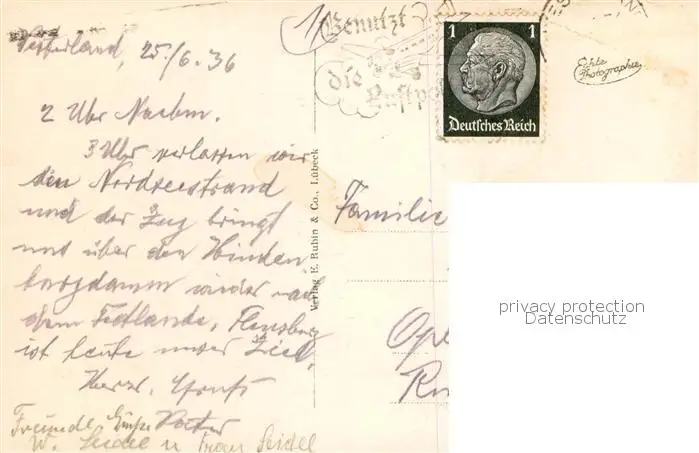 Westerland, 25./6. 36
2 Uhr Nachm.
3 Uhr verlassen wir
den Nordseestrand
und der Zug bringt
uns über den Hinden
burgdamm wieder nach
dem Festlande, Flensburg
ist heute unser Ziel.
Herzl.
Freundl. Grüße Vater
W. Seidel u Frau Seidel
Verlag E. Rubin & Co., Lübeck
Benutzt
die
Luftpo
1 1
Deutsches Reich
Echte
Photographie
Familie
privacy protection
Datenschutz